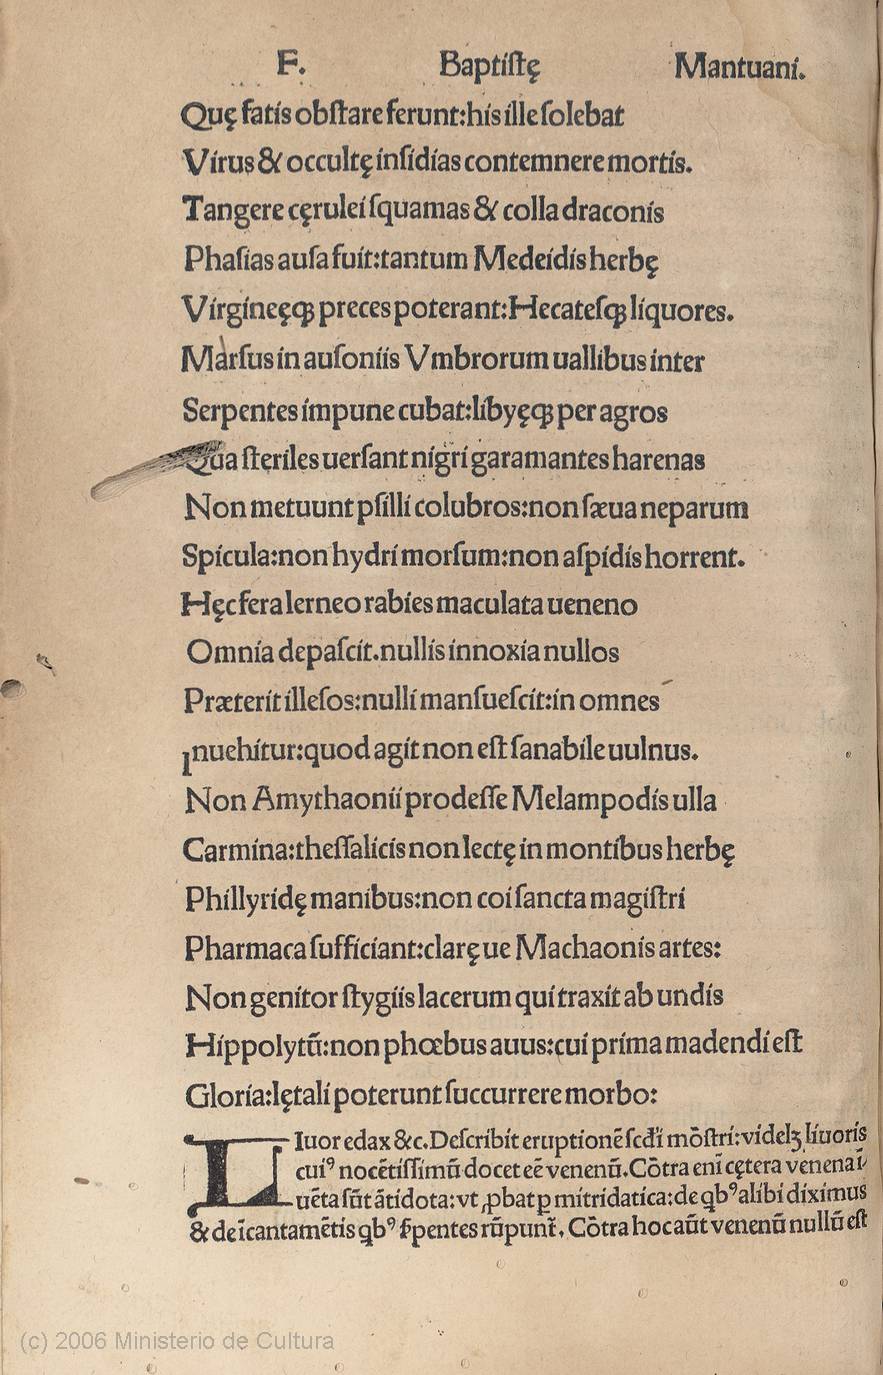 F. Baptiſtę Mantuani.
Quę fatis obſtare ferunt:his ille ſolebat
Virus & occultę inſidias contemnere mortis.
Tangere cęrulei ſquamas & colla draconis
Phaſias auſa fuit:tantum Medeidis herbę
Virgineęꝙ preces poterant:Hecateſꝙ liquores.
Marſus in auſoniis Vmbrorum uallibus inter
Serpentes impune cubat:libyęꝙ per agros
Qua ſteriles uerſant nigri garamantes harenas
Non metuunt pſilli colubros:non ſæua neparum
Spicula:non hydri morſum:non aſpidis horrent.
Hęc fera lerneo rabies maculata ueneno
Omnia depaſcit.nullis innoxia nullos
Præterit illeſos:nulli manſueſcit:in omnes
Inuehitur:quod agit non eſt ſanabile uulnus.
Non Amythaonii prodeſſe Melampodis ulla
Carmina:theſſalicis non lectę in montibus herbę
Phillyridę manibus:non coi ſancta magiſtri
Pharmaca ſufficiant:clarę ue Machaonis artes:
Non genitor ſtygiis lacerum qui traxit ab undis
Hippolytū:non phœbus auus:cui prima madendi eſt
Gloria:lętali poterunt ſuccurrere morbo:
LIuor edax &c.Deſcribit eruptionē ſcd̄i mōſtri:videlꝫ liuoris
cuiꝰ nocētiſſimū docet eē venenū.Cōtra eni̅ cętera venena i̅
uēta ſūt ātidota:vt ꝓbat ꝑ mitridatica:de qbꝰ alibi diximus
& de i̅cantamētis qbꝰ ſ̵pentes rūpunt̄. Cōtra hoc aūt venenū nullū eſt
(c) 2006 Ministerio de Cultura